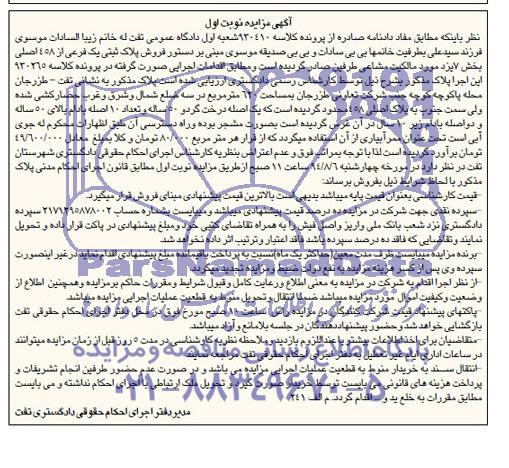 آگهی مزایده نوبت اول
نظر باینکه مطابق مفاد دادنامه صادره از پرونده کلاسه ۹۳۰۴۱۰شعبه اول دادگاه عمومی تفت له خانم زیبا السادات موسوی
فرزند سیدعلی بطرفیت خانمها بی بی سادات و بی بی صدیقه موسوی مبنی بر دستور فروش پلاک ثبتی یک فرعی از ۴۵۸ اصلی
بخش ۷یزد مورد مالکیت مشاعی طرفین صادر گردیده است ومطابق اقدامات اجرایی صورت گرفته در پرونده کلاسه ۹۳۰۲۶۵
این اجرا پلاک مذکور بشرح ذیل توسط کارشناس رسمی دادگستری ارزیابی شده است پلاک مذکور به نشانی تفت - طزرجان
محله پاکوچه کوچه جنب شرکت تعاونی طزرجان بمساحت ۶۲۰ مترمربع در سه ضلع شمال و شرق وغرب حصارکشی شده
ولی سمت جنوب به پلاک اصلی ۴۵۸ محدود گردیده است که یک اصله درخت گردو ۵۰ ساله و تعداد ۱۰ اصله بادام بالای ۵۰ ساله
و دواصله بادام زیر ۱۰ سال در آن غرس گردیده است بصورت مشجر بوده وراه دسترسی آن طبق اظهارات محکوم له جوی
آبی است تحت عنوان ممر آبیاری از آن استفاده میگردد که از قرار هر متر مربع ۸۰/۰۰۰ تومان و کلا بمبلغ معادل ۴۹/۶۰۰/۰۰۰
تومان برآورد گردیده است لذا با توجه بمراتب فوق و عدم اعتراض بنظریه کارشناس اجرای احکام حقوقی دادگستری شهرستان
تفت در نظر دارد در مورخه چهارشنبه ۹۴/۸/۶ ساعت ۱۱ صبح از طریق مزایده نوبت اول مطابق قانون اجرای احکام مدنی پلاک
مذکور با لحاظ شرایط ذیل بفروش برساند:
-قیمت کارشناسی بعنوان قیمت پایه میباشد بدیهی است بالاترین قیمت پیشنهادی مبنای فروش قرار میگیرد.
-سپرده نقدی جهت شرکت در مزایده ده درصد قیمت پیشنهادی میباشد و میبایست بشماره حساب ۲۱۷۱۲۹۵۸۷۸۰۰۲ سپرده
دادگستری نزد شعب بانک ملی واریز و اصل فیش را به همراه تقاضای کتبی خرید و مبلغ پیشنهادی در پاکت قرار داده و تحویل
نمایند و تقاضایی که فاقد ده درصد سپرده باشد فاقد اعتبار و ترتیب اثر داده نخواهد شد.
-برنده مزایده میبایست ظرف مدت معین(حداکثر یک ماه)نسبت به پرداخت باقیمانده مبلغ پیشنهادی اقدام نماید در غیر اینصورت
سپرده وی پس از کسر هزینه مزایده به نفع دولت ضبط و مزایده تجدید میگردد.
-از نظر اجرا اقدام به شرکت در مزایده به معنی اطلاع ورعایت کامل وقبول شرایط و مقررات حاکم بر مزایده وهمچنین اطلاع از
وضعیت وکیفیت اموال مورد مزایده میباشد ضمنا انتقال و تحویل منوط به قطعیت عملیات اجرایی مزایده میباشد.
-پاکتهای پیشنهاد قیمت شرکت کنندگان در مزایده راس ساعت ۱۱ صبح مورخ فوق در محل دفتر اجرای احکام حقوقی تفت
بازگشایی خواهد شد و حضور پیشنهاددهندگان در جلسه بلامانع و آزاد میباشد.
-متقاضیان برای اخذ اطلاعات بیشتر یا عنداللزوم بازدید و ملاحظه نظریه کارشناسی در مدت ۵ روز قبل از زمان مزایده میتوانند
در ساعات اداری ایام غیر تعطیل به دفتر اجرای احکام حقوقی تفت مراجعه نمایند.
-انتقال سند به خریدار منوط به قطعیت عملیات اجرایی مزایده می باشد و در صورت عدم حضور طرفین انجام تشریفات و
پرداخت هزینه های قانونی می بایست توسط خریدار صورت گیرد و تحویل ملک ارتباطی با اجرای احکام نداشته و می بایست
مطابق مقررات به خلع ید و اقدام گردد. م الف ۲۴۱
مدیر دفتر اجرای احکام حقوقی دادگستری تفت
ParsNamadData
پایگاه اطلاع رسانی مناقصه و مزایده
۰۲۱-۸۸۳۴۹۶۷۰-۵